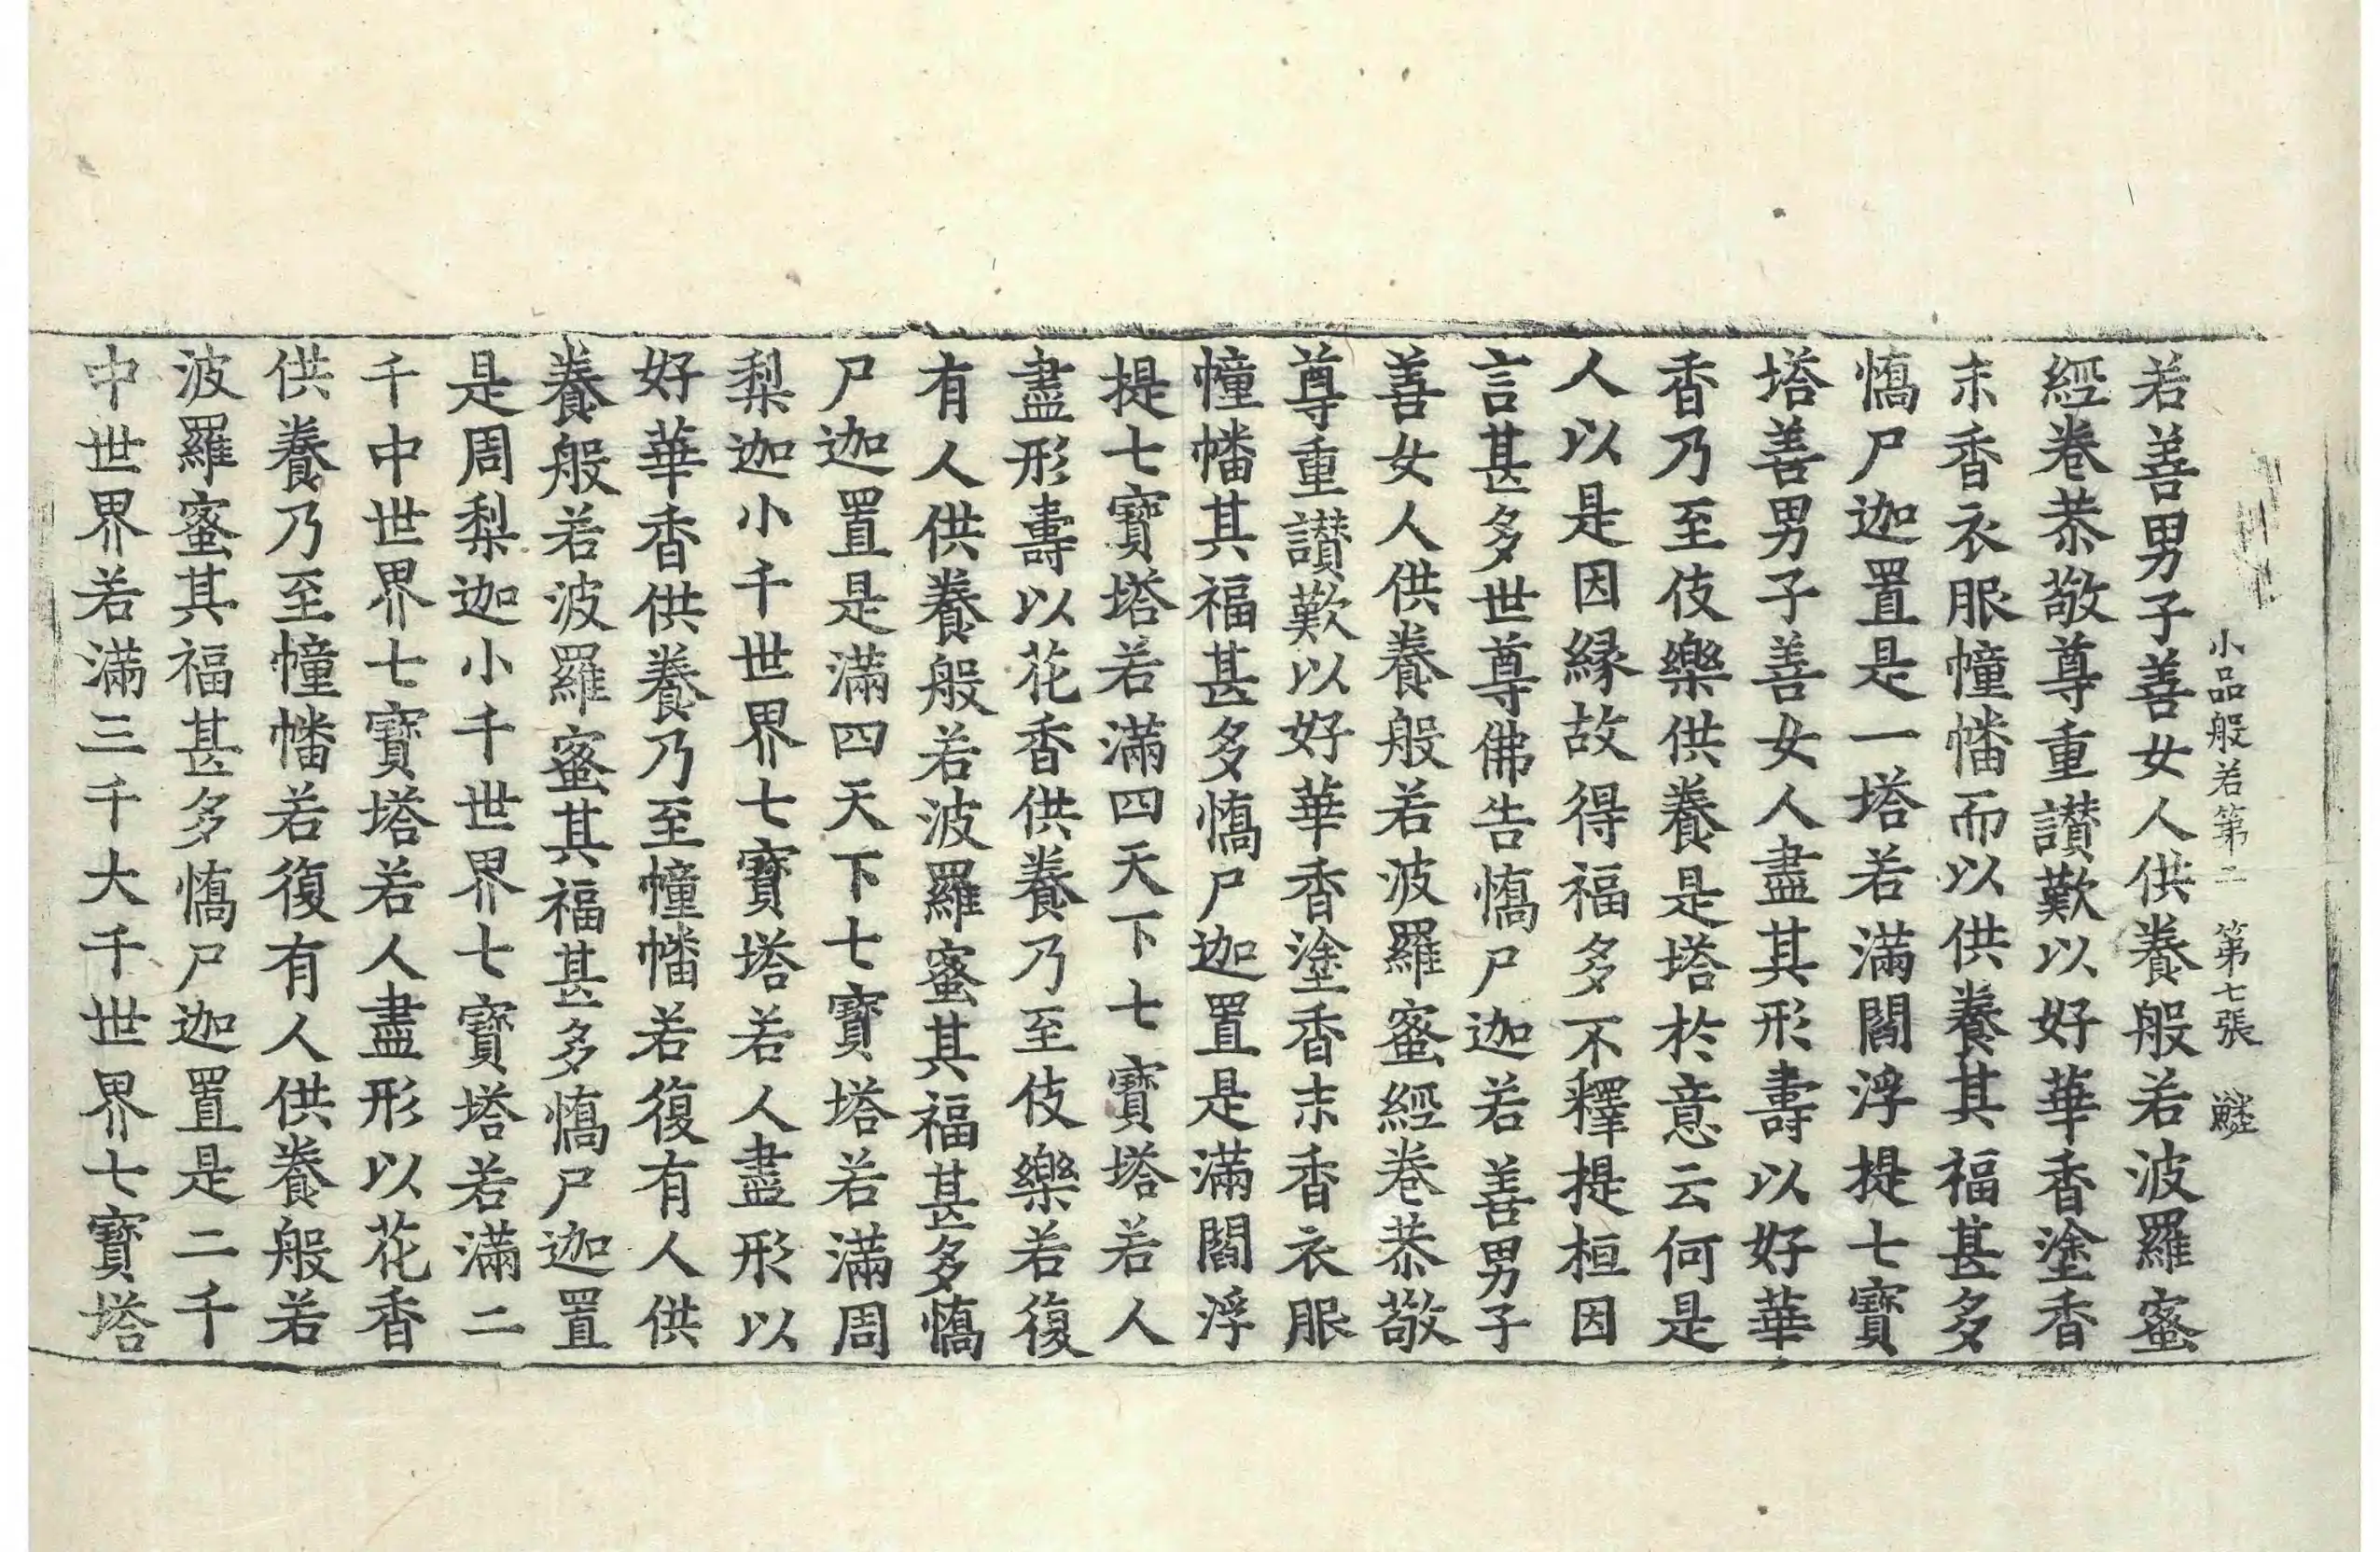 小品般若第二　第七張　鱗
若善男子善女人供養般若波羅蜜
經卷恭敬尊重讚歎以好華香塗香
末香衣服幢幡而以供養其福甚多
憍尸迦置是一塔若滿閻浮提七寶
塔善男子善女人盡其形壽以好華
香乃至伎樂供養是塔於意云何是
人以是因緣故得福多不釋提桓因
言甚多世尊佛告憍尸迦若善男子
善女人供養般若波羅蜜經卷恭敬
尊重讚歎以好華香塗香末香衣服
幢幡其福甚多憍尸迦置是滿閻浮
提七寶塔若滿四天下七寶塔若人
盡形壽以花香供養乃至伎樂若復
有人供養般若波羅蜜其福甚多憍
尸迦置是滿四天下七寶塔若滿周
梨迦小千世界七寶塔若人盡形以
好華香供養乃至幢幡若復有人供
養般若波羅蜜其福甚多憍尸迦置
是周梨迦小千世界七寶塔若滿二
千中世界七寶塔若人盡形以花香
供養乃至幢幡若復有人供養般若
波羅蜜其福甚多憍尸迦置是二千
中世界若滿三千大千世界七寶塔